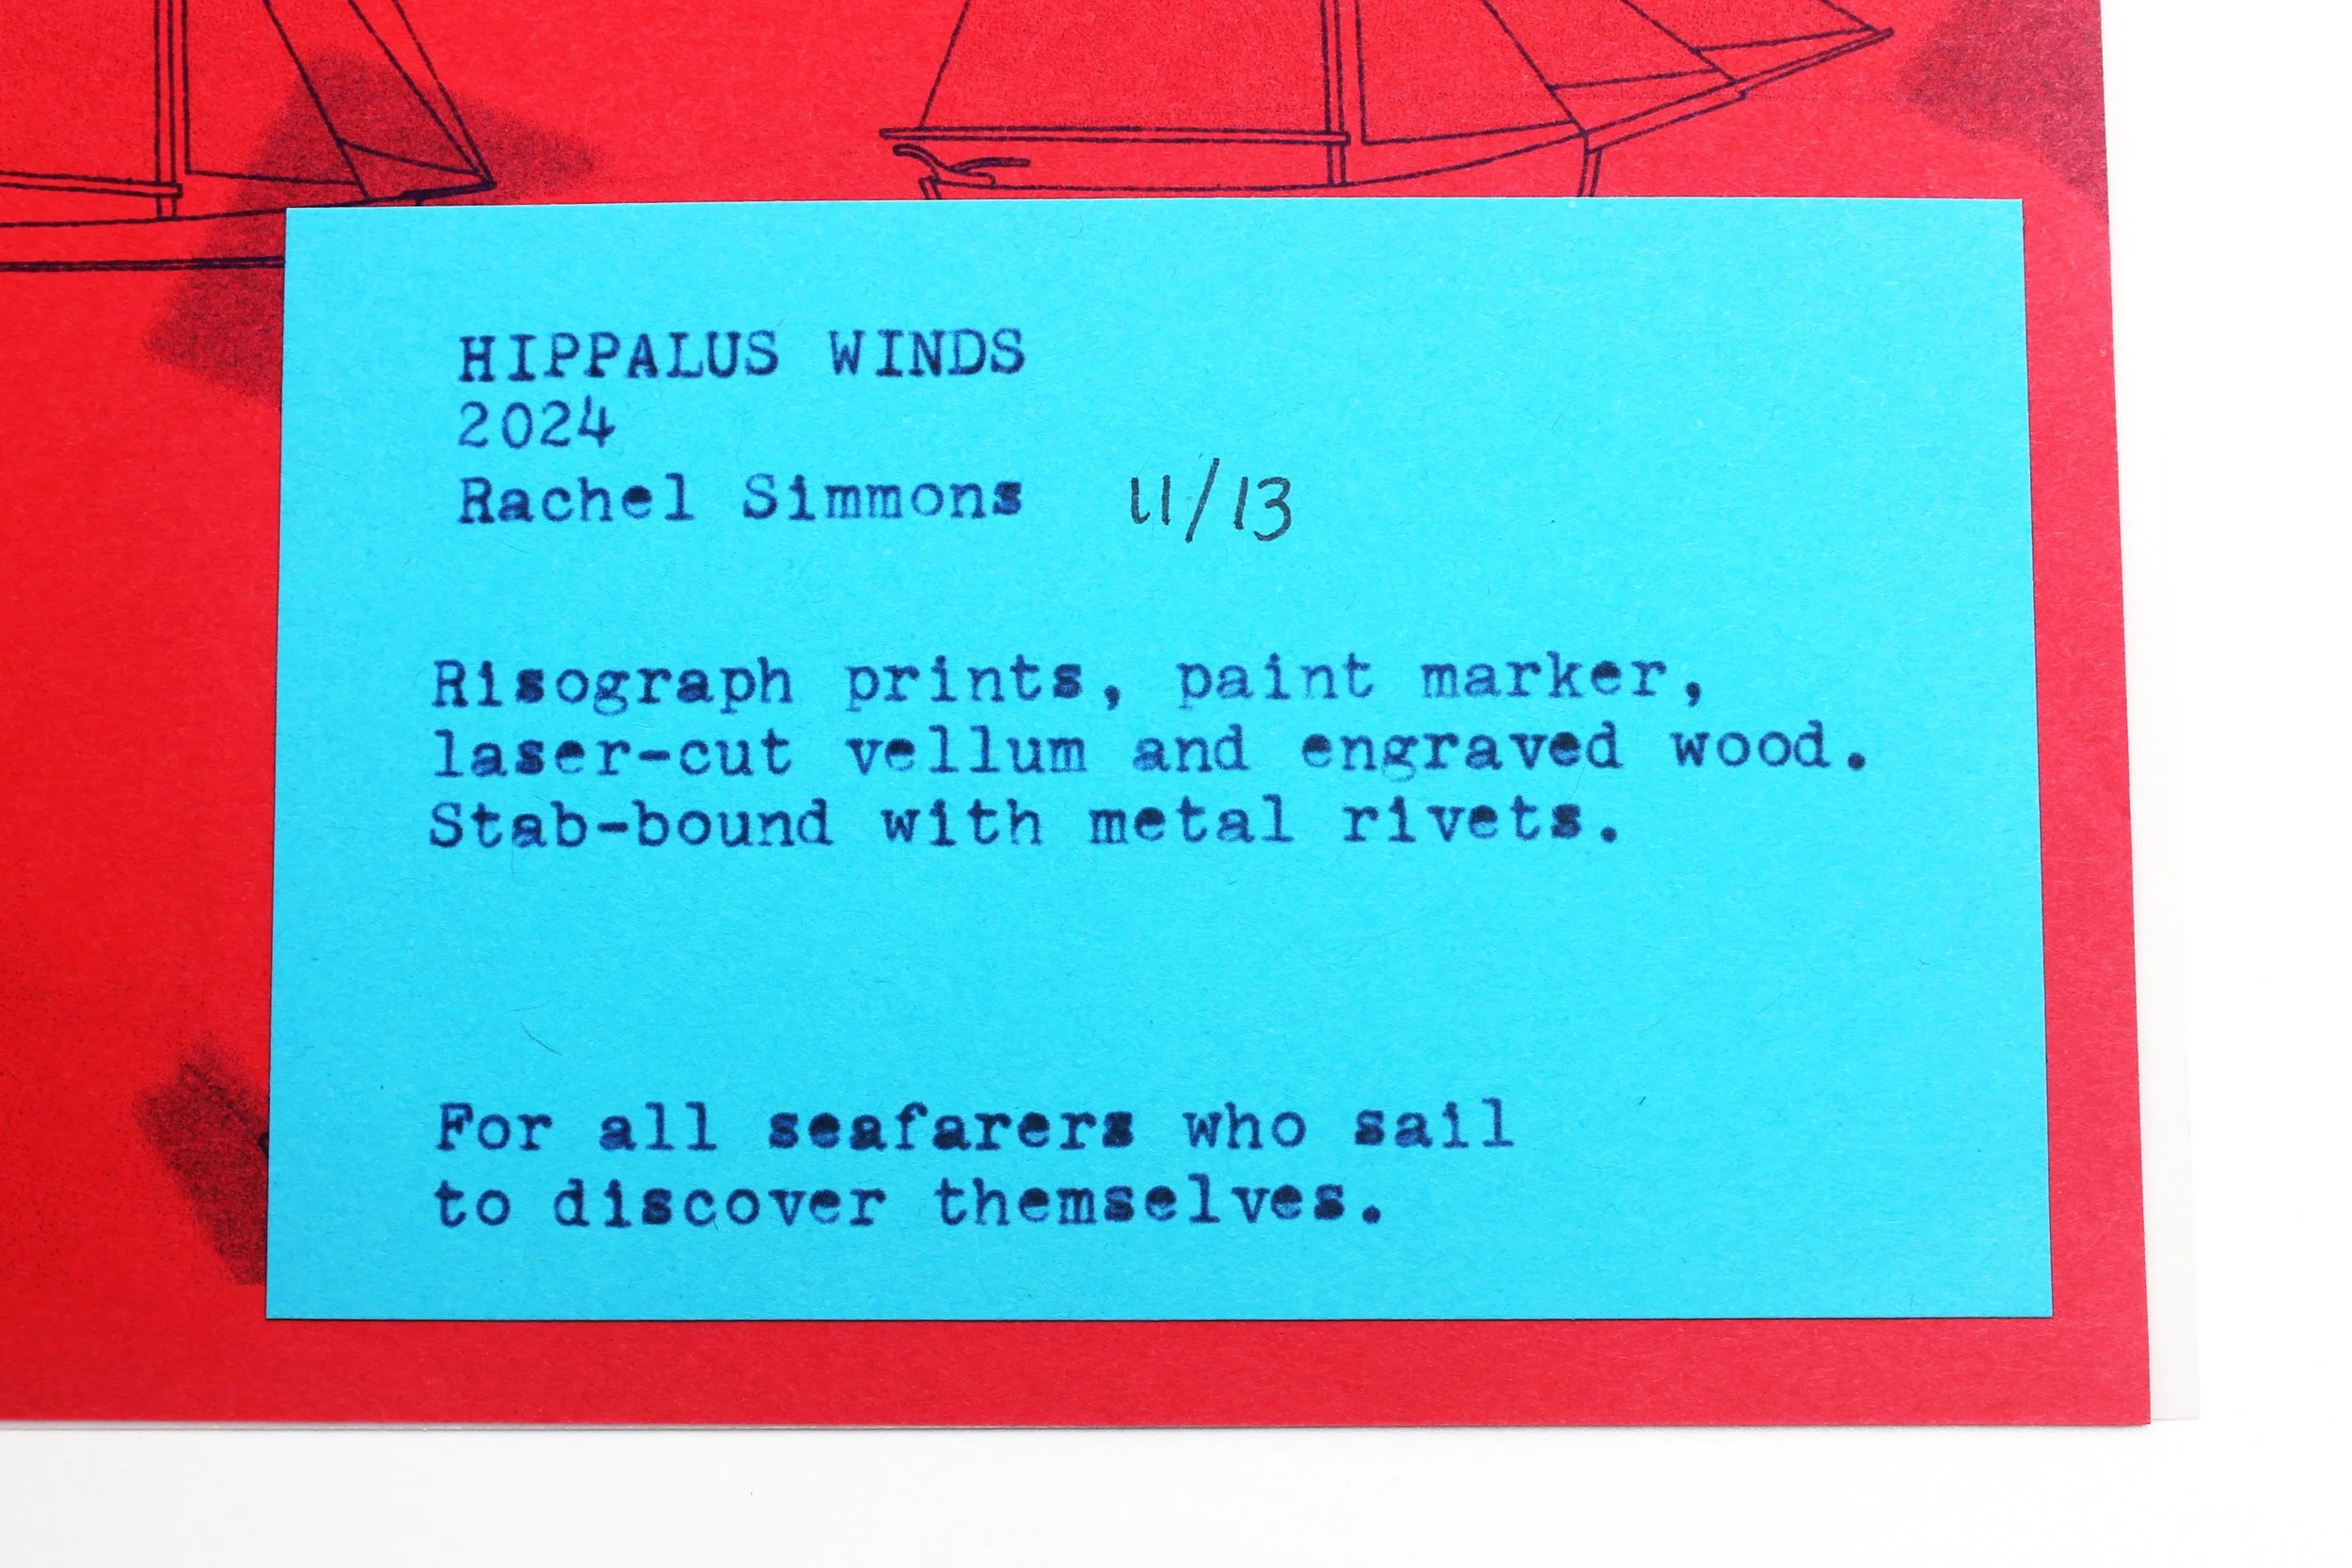 HIPPALUS WINDS
2024
Rachel Simmons 11/13
Risograph prints, paint marker,
laser-cut vellum and engraved wood.
Stab-bound with metal rivets.
For all seafarers who sail
to discover themselves.